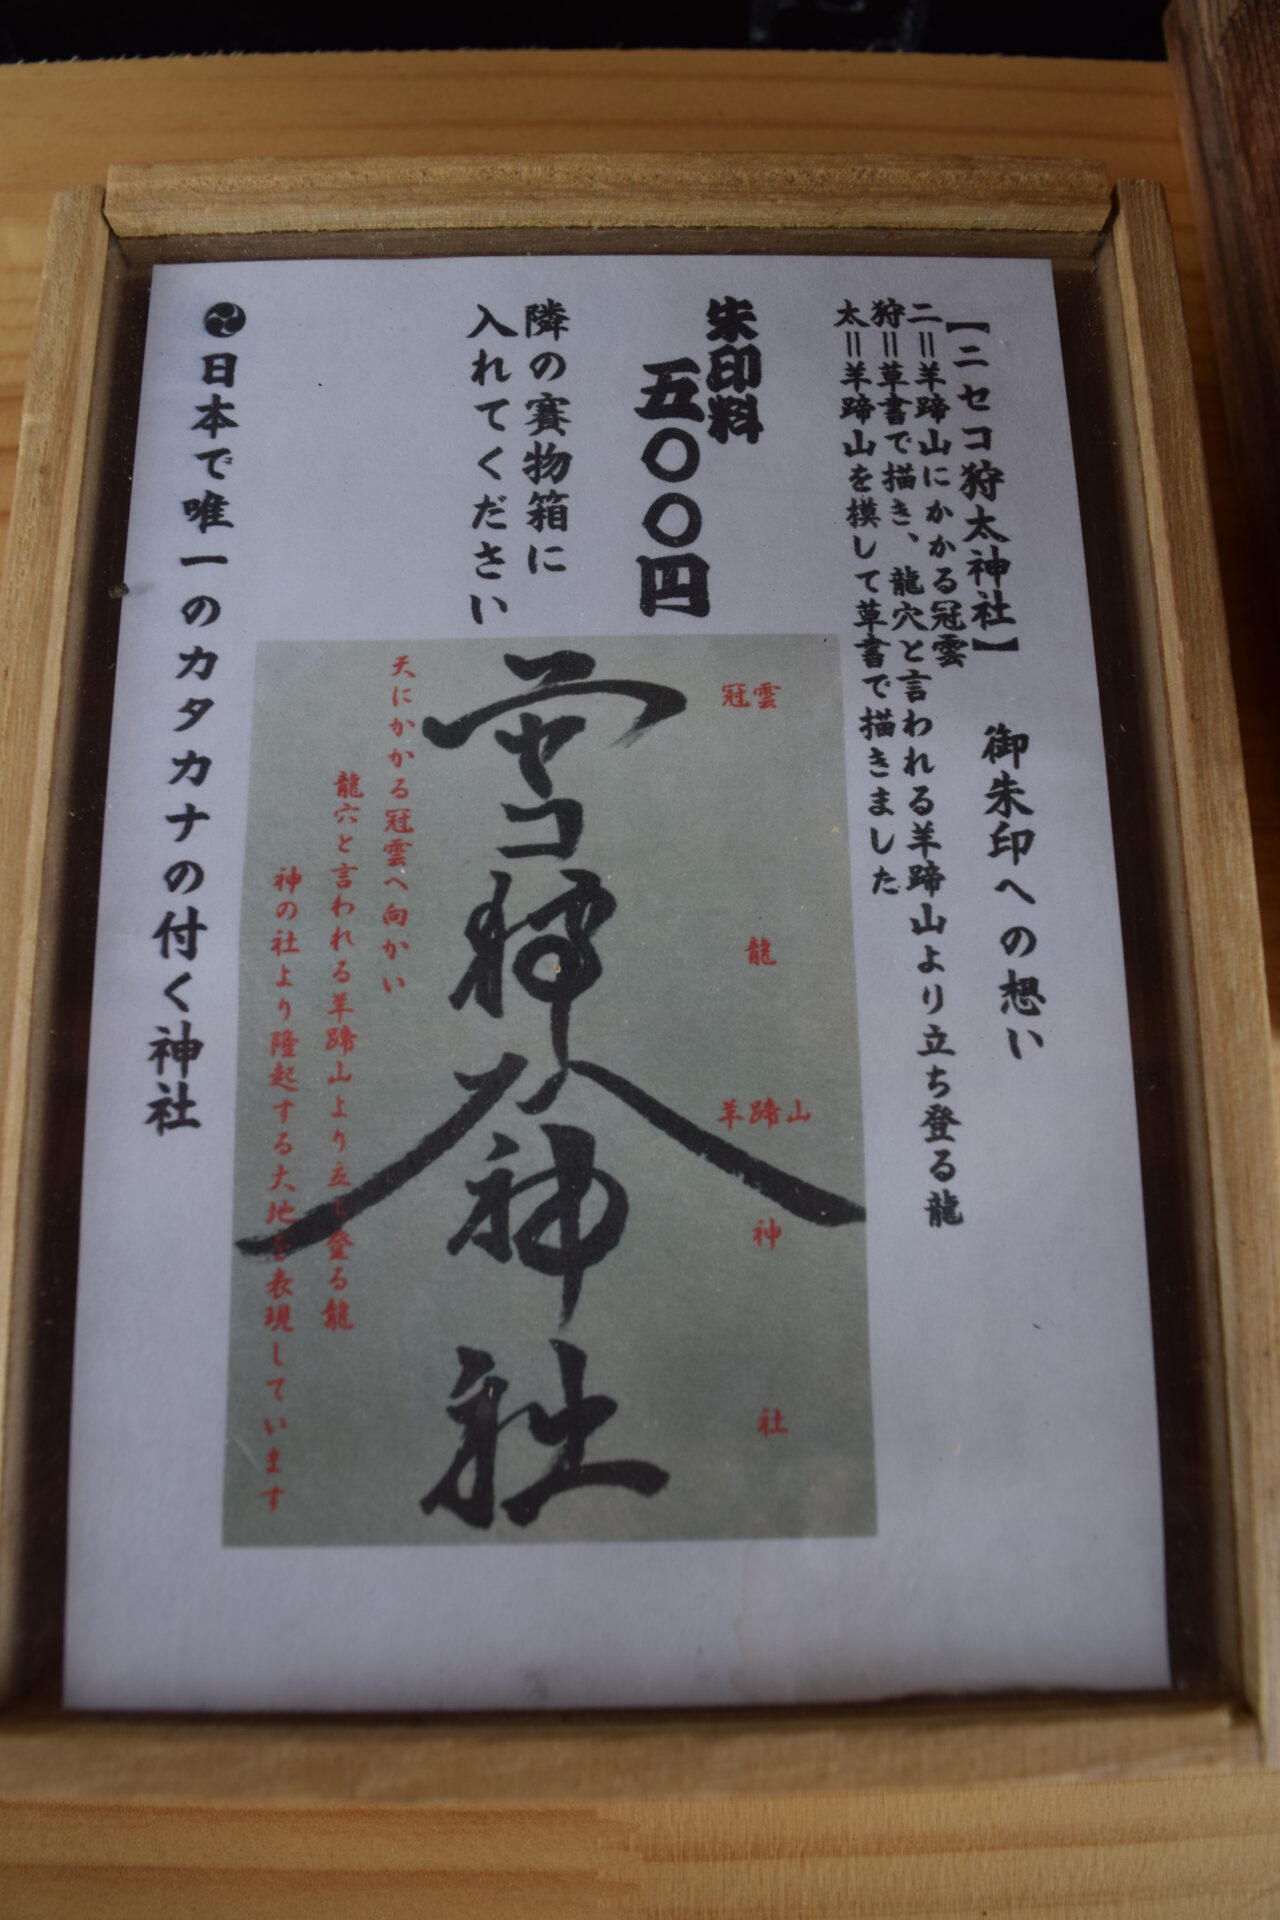 【ニセコ狩太神社】 御朱印への想い
ニ=羊蹄山にかかる冠雲
狩=草書で描き、龍穴と言われる羊蹄山より立ち登る龍
太=羊蹄山を模して草書で描きました
朱印料
五〇〇円
隣の賽物箱に
入れてください
冠雲
龍
羊蹄山
神
社
ニセコ狩太神社
天にかかる冠雲へ向かい
龍穴と言われる羊蹄山より立ち登る龍
神の社より隆起する大地を表現しています
日本で唯一のカタカナの付く神社